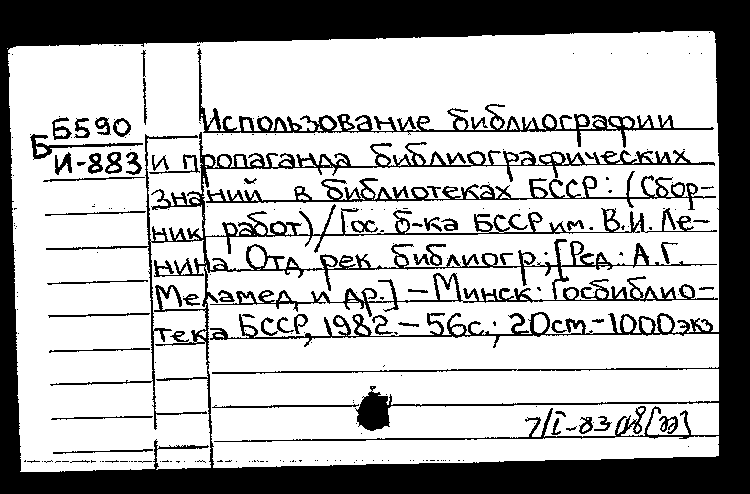 Использование библиографии
Б Б590
И-883
и пропаганда библиографических
знаний в библиотеках БССР: (Сбор-
ник работ)/Гос. б-ка БССР им. В.И. Ле-
нина. Отд. рек. библиогр.; [Ред.: А.Г.
Меламед и др.] - Минск: Госбиблио-
тека БССР, 1982. - 56с.; 20см. - 1000 экз
7/I-83